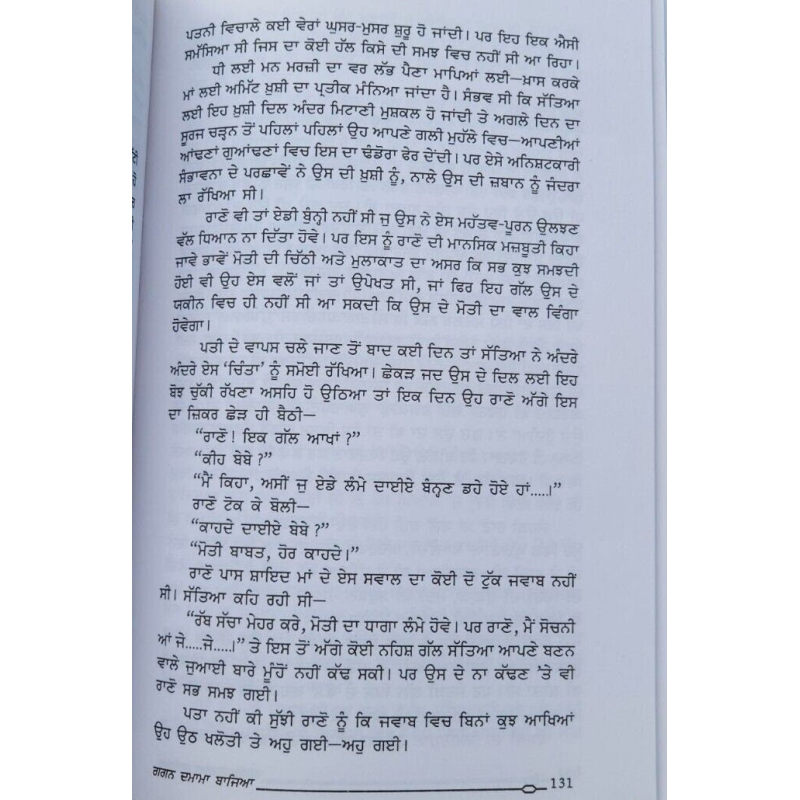 ਪਤਨੀ ਵਿਚਾਲੇ ਕਈ ਵੇਰਾਂ ਘੁਸਰ-ਮੁਸਰ ਸ਼ੁਰੂ ਹੋ ਜਾਂਦੀ। ਪਰ ਇਹ ਇਕ ਐਸੀ
ਸਮੱਸਿਆ ਸੀ ਜਿਸ ਦਾ ਕੋਈ ਹੱਲ ਕਿਸੇ ਦੀ ਸਮਝ ਵਿਚ ਨਹੀਂ ਸੀ ਆ ਰਿਹਾ।
ਧੀ ਲਈ ਮਨ ਮਰਜ਼ੀ ਦਾ ਵਰ ਲੱਭ ਪੈਣਾ ਮਾਪਿਆਂ ਲਈ—ਖ਼ਾਸ ਕਰਕੇ
ਮਾਂ ਲਈ ਅਮਿੱਟ ਖ਼ੁਸ਼ੀ ਦਾ ਪ੍ਰਤੀਕ ਮੰਨਿਆ ਜਾਂਦਾ ਹੈ। ਸੰਭਵ ਸੀ ਕਿ ਸੱਤਿਆ
ਲਈ ਇਹ ਖ਼ੁਸ਼ੀ ਦਿਲ ਅੰਦਰ ਮਿਟਾਣੀ ਮੁਸ਼ਕਲ ਹੋ ਜਾਂਦੀ ਤੇ ਅਗਲੇ ਦਿਨ ਦਾ
ਸੂਰਜ ਚੜ੍ਹਨ ਤੋਂ ਪਹਿਲਾਂ ਪਹਿਲਾਂ ਉਹ ਆਪਣੇ ਗਲੀ ਮੁਹੱਲੇ ਵਿਚ—ਆਪਣੀਆਂ
ਆਂਢਣਾਂ ਗੁਆਂਢਣਾਂ ਵਿਚ ਇਸ ਦਾ ਢੰਡੋਰਾ ਫੇਰ ਦੇਂਦੀ। ਪਰ ਏਸੇ ਅਨਿਸ਼ਟਕਾਰੀ
ਸੰਭਾਵਨਾ ਦੇ ਪਰਛਾਵੇਂ ਨੇ ਉਸ ਦੀ ਖ਼ੁਸ਼ੀ ਨੂੰ, ਨਾਲੇ ਉਸ ਦੀ ਜ਼ਬਾਨ ਨੂੰ ਜੰਦਰਾ
ਲਾ ਰੱਖਿਆ ਸੀ।
ਰਾਣੋ ਵੀ ਤਾਂ ਏਡੀ ਬੁੰਨ੍ਹੀ ਨਹੀਂ ਸੀ ਜੁ ਉਸ ਨੇ ਏਸ ਮਹੱਤਵ-ਪੂਰਨ ਉਲਝਣ
ਵੱਲ ਧਿਆਨ ਨਾ ਦਿੱਤਾ ਹੋਵੇ। ਪਰ ਇਸ ਨੂੰ ਰਾਣੋ ਦੀ ਮਾਨਸਿਕ ਮਜ਼ਬੂਤੀ ਕਿਹਾ
ਜਾਵੇ ਭਾਵੇਂ ਮੋਤੀ ਦੀ ਚਿੱਠੀ ਅਤੇ ਮੁਲਾਕਾਤ ਦਾ ਅਸਰ ਕਿ ਸਭ ਕੁਝ ਸਮਝਦੀ
ਹੋਈ ਵੀ ਉਹ ਏਸ ਵਲੋਂ ਜਾਂ ਤਾਂ ਉਪੇਖਤ ਸੀ, ਜਾਂ ਫਿਰ ਇਹ ਗੱਲ ਉਸ ਦੇ
ਯਕੀਨ ਵਿਚ ਹੀ ਨਹੀਂ ਸੀ ਆ ਸਕਦੀ ਕਿ ਉਸ ਦੇ ਮੋਤੀ ਦਾ ਵਾਲ ਵਿੰਗਾ
ਹੋਵੇਗਾ।
ਪਤੀ ਦੇ ਵਾਪਸ ਚਲੇ ਜਾਣ ਤੋਂ ਬਾਦ ਕਈ ਦਿਨ ਤਾਂ ਸੱਤਿਆ ਨੇ ਅੰਦਰੇ
ਅੰਦਰੇ ਏਸ ‘ਚਿੰਤਾ’ ਨੂੰ ਸਮੋਈ ਰੱਖਿਆ। ਛੇਕੜ ਜਦ ਉਸ ਦੇ ਦਿਲ ਲਈ ਇਹ
ਬੋਝ ਚੁੱਕੀ ਰੱਖਣਾ ਅਸਹਿ ਹੋ ਉਠਿਆ ਤਾਂ ਇਕ ਦਿਨ ਉਹ ਰਾਣੋ ਅੱਗੇ ਇਸ
ਦਾ ਜ਼ਿਕਰ ਛੇੜ ਹੀ ਬੈਠੀ—
“ਰਾਣੋ! ਇਕ ਗੱਲ ਆਖਾਂ?”
“ਕੀਹ ਬੇਬੇ?”
“ਮੈਂ ਕਿਹਾ, ਅਸੀਂ ਜੁ ਏਡੇ ਲੰਮੇ ਦਾਈਏ ਬੰਨ੍ਹਣ ਡਹੇ ਹੋਏ ਹਾਂ.....।”
ਰਾਣੋ ਟੋਕ ਕੇ ਬੋਲੀ—
“ਕਾਹਦੇ ਦਾਈਏ ਬੇਬੇ?”
“ਮੋਤੀ ਬਾਬਤ, ਹੋਰ ਕਾਹਦੇ।”
ਰਾਣੋ ਪਾਸ ਸ਼ਾਇਦ ਮਾਂ ਦੇ ਏਸ ਸਵਾਲ ਦਾ ਕੋਈ ਦੋ ਟੁੱਕ ਜਵਾਬ ਨਹੀਂ
ਸੀ। ਸੱਤਿਆ ਕਹਿ ਰਹੀ ਸੀ—
“ਰੱਬ ਸੱਚਾ ਮੇਹਰ ਕਰੇ, ਮੋਤੀ ਦਾ ਧਾਗਾ ਲੰਮੇ ਹੋਵੇ। ਪਰ ਰਾਣੋ, ਮੈਂ ਸੋਚਨੀ
ਆਂ ਜੇ.....ਜੇ.....।” ਤੇ ਇਸ ਤੋਂ ਅੱਗੇ ਕੋਈ ਨਹਿਸ਼ ਗੱਲ ਸੱਤਿਆ ਆਪਣੇ ਬਣਨ
ਵਾਲੇ ਜੁਆਈ ਬਾਰੇ ਮੂੰਹੋਂ ਨਹੀਂ ਕੱਢ ਸਕੀ। ਪਰ ਉਸ ਦੇ ਨਾ ਕੱਢਣ ’ਤੇ ਵੀ
ਰਾਣੋ ਸਭ ਸਮਝ ਗਈ।
ਪਤਾ ਨਹੀਂ ਕੀ ਸੁੱਝੀ ਰਾਣੋ ਨੂੰ ਕਿ ਜਵਾਬ ਵਿਚ ਬਿਨਾਂ ਕੁਝ ਆਖਿਆਂ
ਉਹ ਉਠ ਖਲੋਤੀ ਤੇ ਅਹੁ ਗਈ—ਅਹੁ ਗਈ।
ਗਗਨ ਦਮਾਮਾ ਬਾਜਿਆ 131